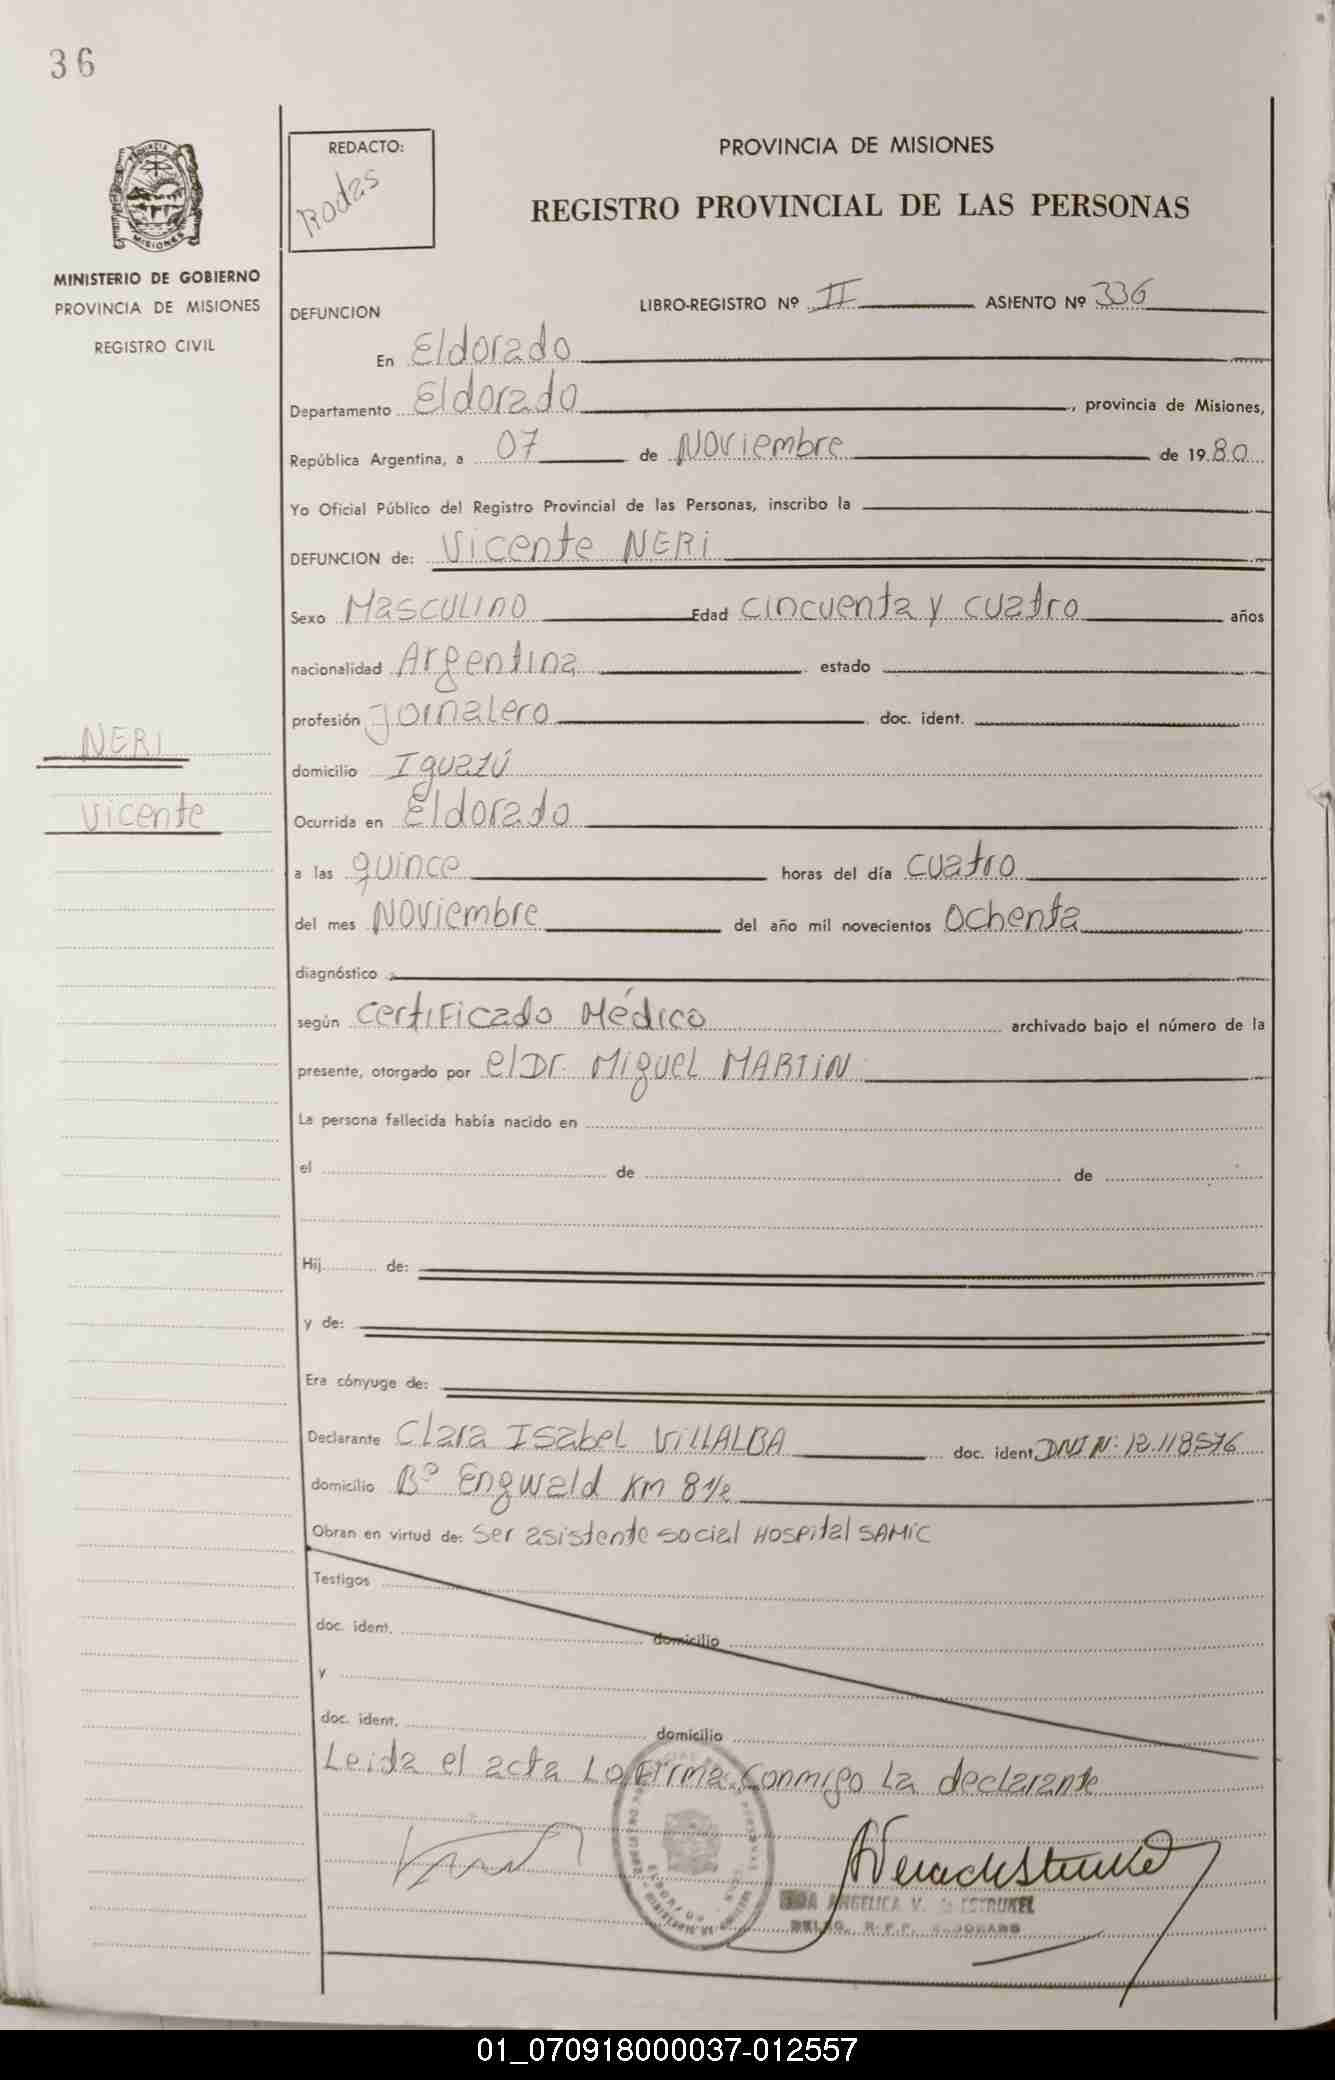 36
PROVINCIA
MISIONES
MINISTERIO DE GOBIERNO
PROVINCIA DE MISIONES
REGISTRO CIVIL
REDACTO:
Rodas
PROVINCIA DE MISIONES
REGISTRO PROVINCIAL DE LAS PERSONAS
DEFUNCION LIBRO-REGISTRO Nº II ASIENTO Nº 336
En Eldorado
Departamento Eldorado, provincia de Misiones,
República Argentina, a 07 de Noviembre de 1980
Yo Oficial Público del Registro Provincial de las Personas, inscribo la
DEFUNCION de: Vicente NERI
Sexo Masculino Edad cincuenta y cuatro años
nacionalidad Argentina estado
profesión Jornalero doc. ident.
NERI
domicilio Iguazú
Vicente
Ocurrida en Eldorado
a las quince horas del día cuatro
del mes Noviembre del año mil novecientos Ochenta
diagnóstico
según Certificado Médico archivado bajo el número de la
presente, otorgado por el Dr. Miguel MARTIN
La persona fallecida había nacido en
el de de
Hij de:
y de:
Era cónyuge de:
Declarante Clara Isabel VILLALBA doc. ident. DNI Nº 12.118576
domicilio Bº Engwald Km 8 1/2
Obran en virtud de: ser asistente social Hospital SAMIC
Testigos
doc. ident. domicilio
y
doc. ident. domicilio
Leida el acta La Firma conmigo la declarante
ANGELICA V. ESTRUKEL
DELEG. R.P.P. ELDORADO
01_070918000037-012557